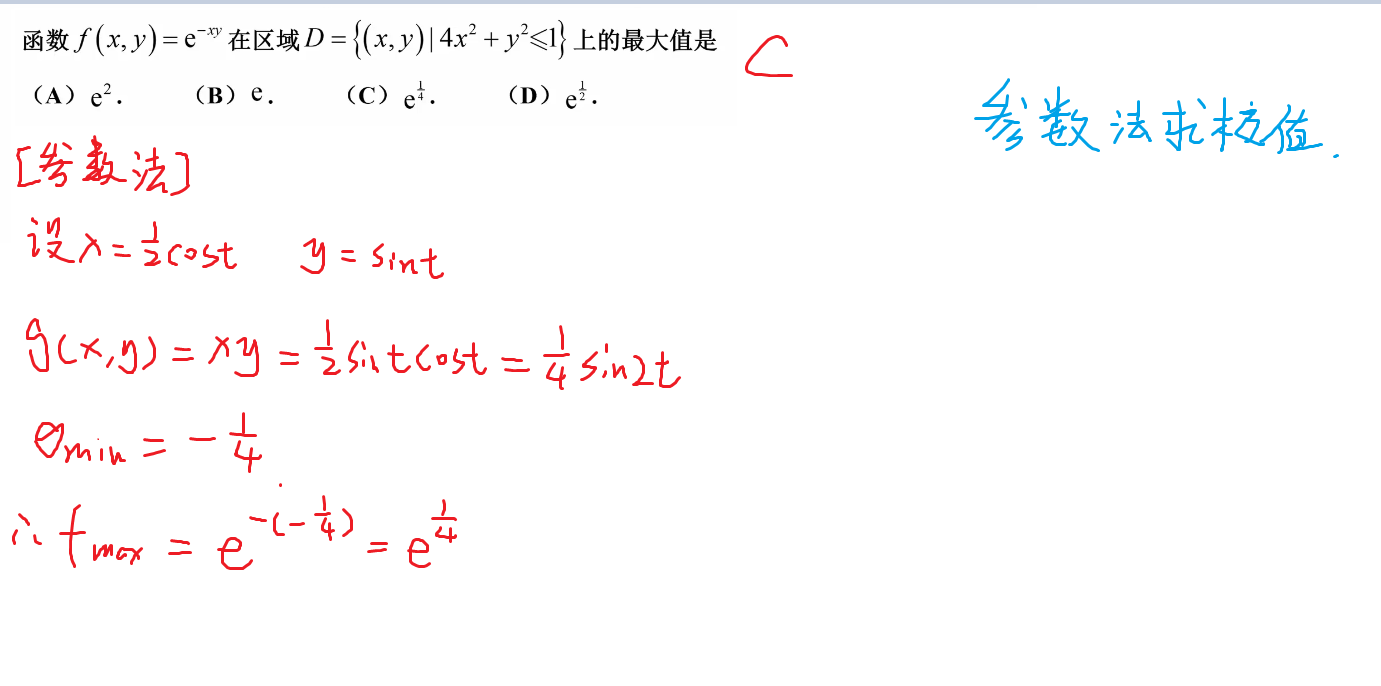 函数 f(x,y)=e^{-xy} 在区域 D={(x,y)|4x²+y²⩽1} 上的最大值是
(A) e². (B) e. (C) e^{1/4}. (D) e^{1/2}.
C
参数法求极值.
[参数法]
设x=1/2cost y=sint
g(x,y)=xy=1/2sintcost=1/4sin2t
θmin=-1/4
∴fmax=e^{-(-1/4)}=e^{1/4}